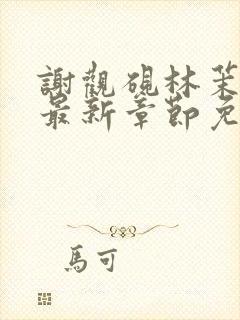 謝觀硯林
最新章節免
馬可